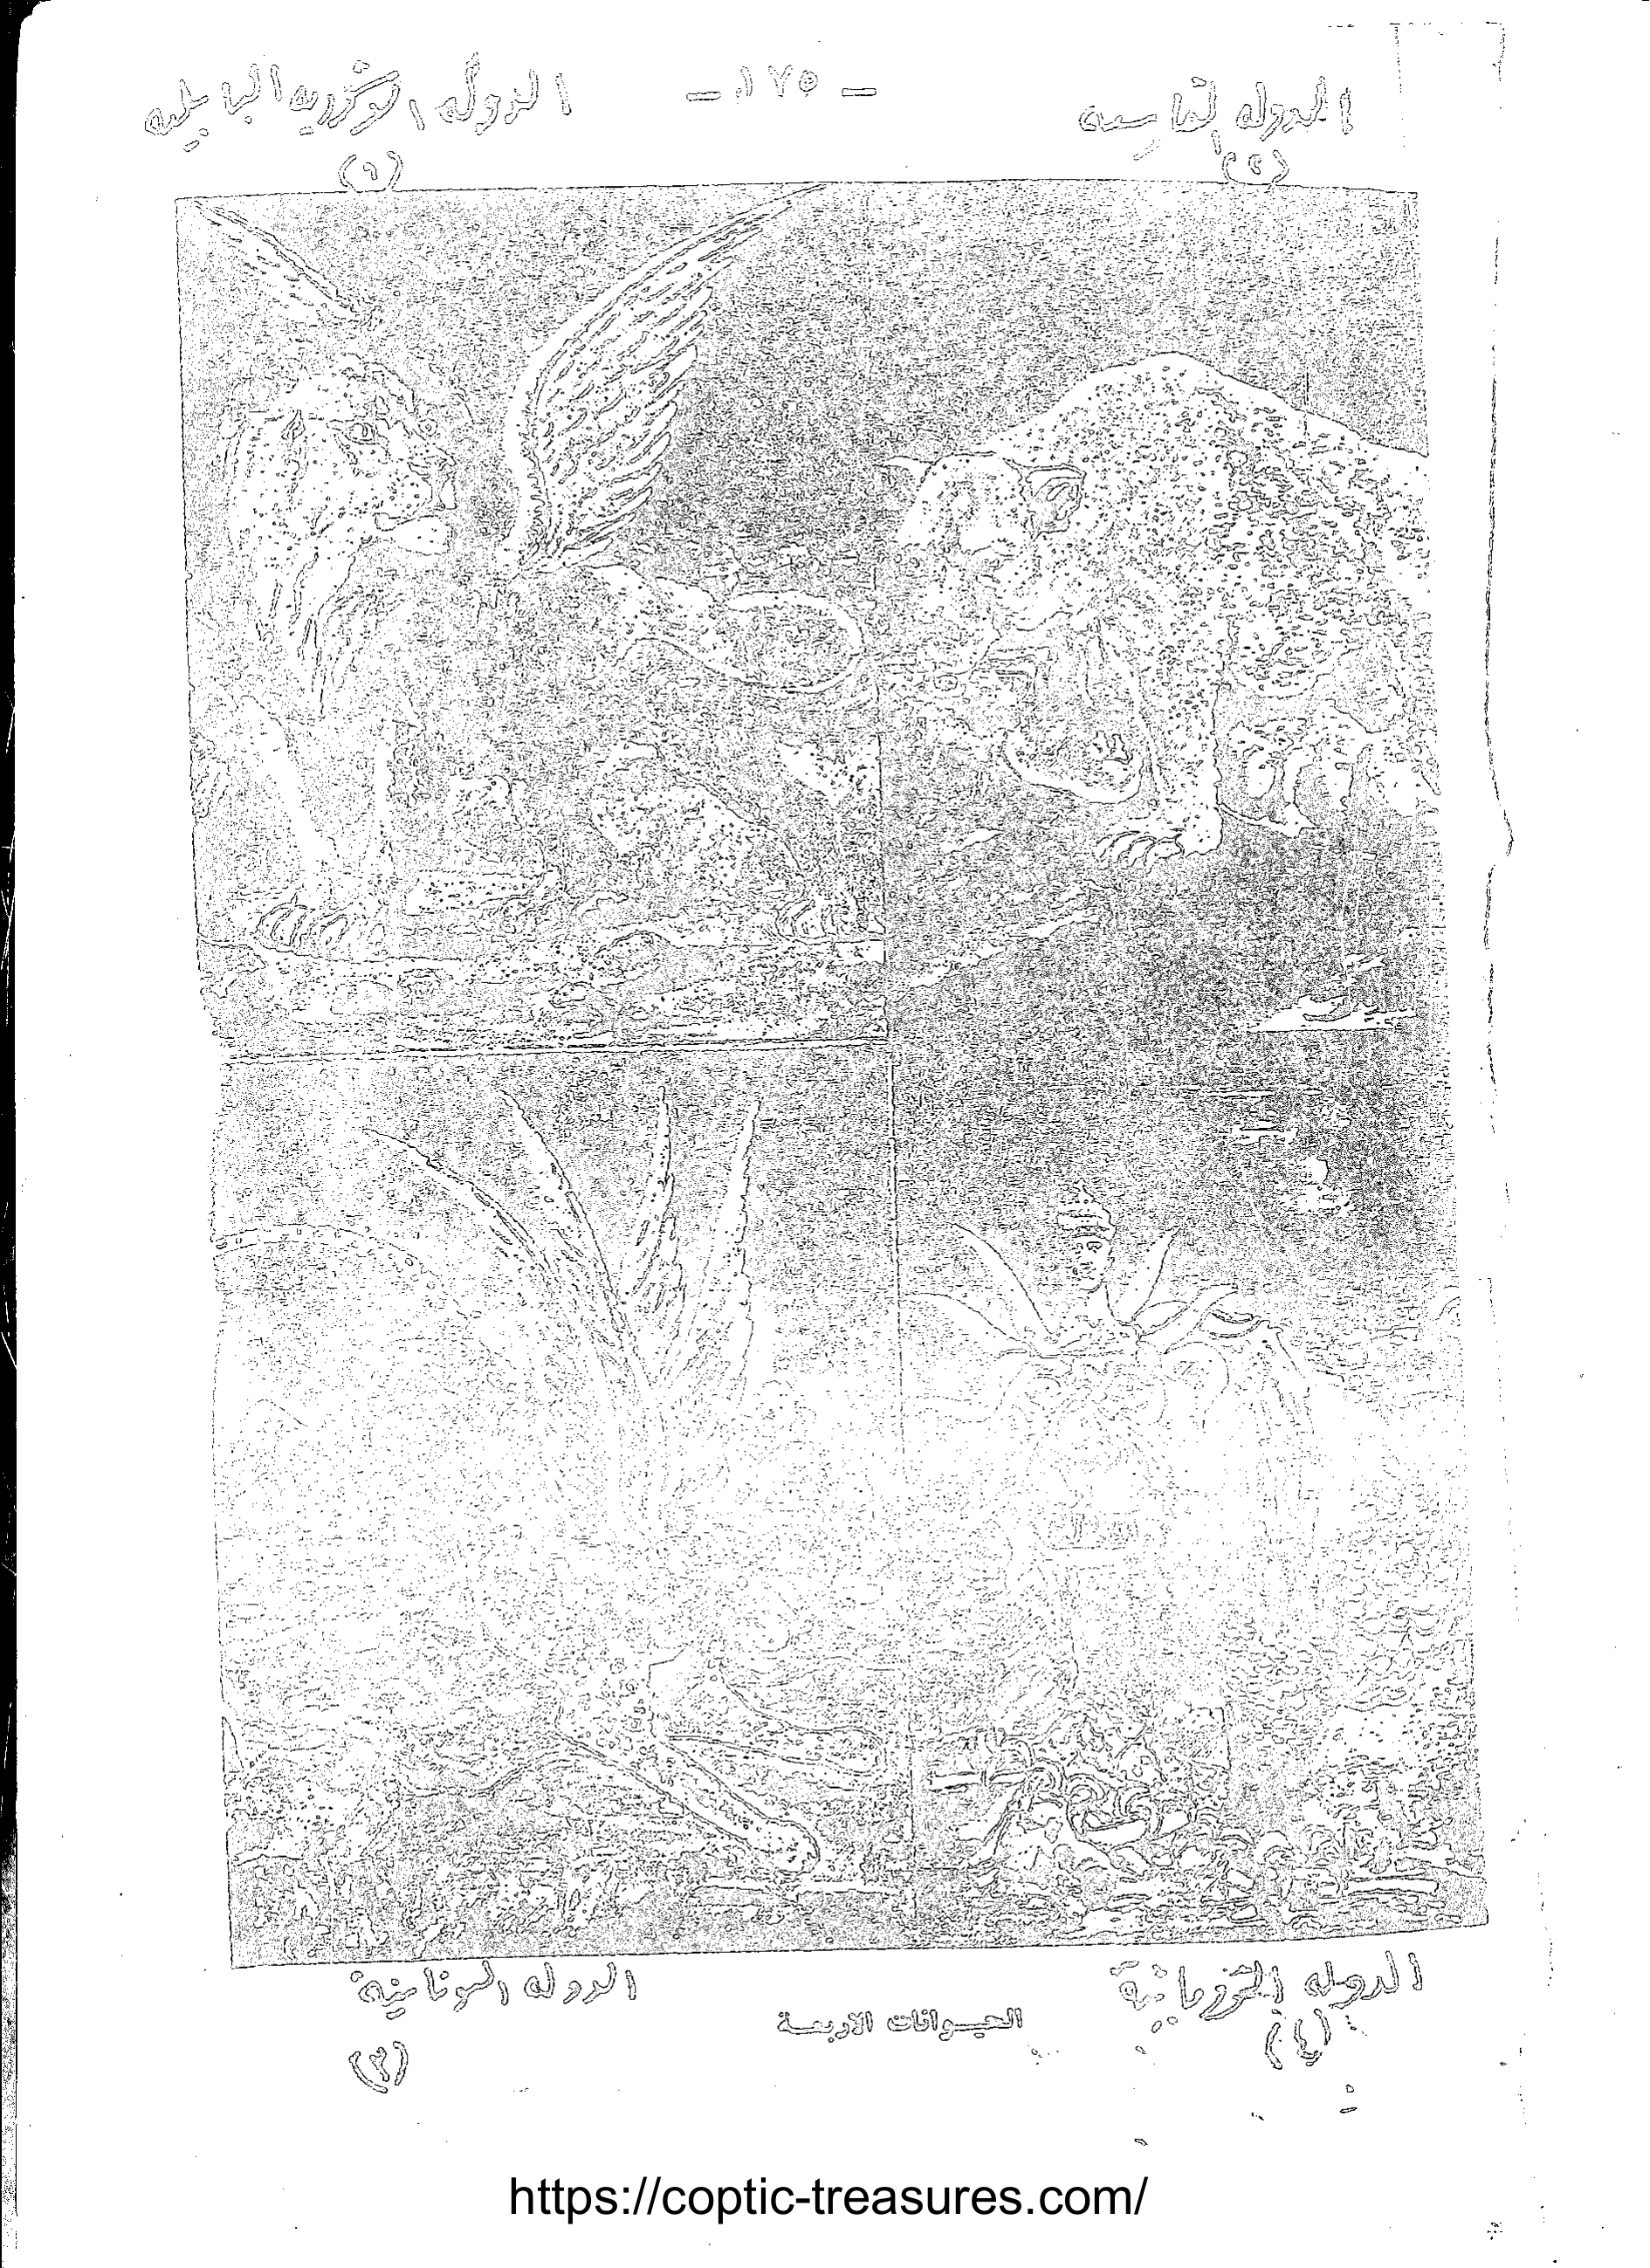 - ١٧٥ -
الدولة الاشورية البابلية
(١)
الدوله الفارسيه
(٢)
الدوله اليونانية
(٣)
الدوله الرومانية
(٤)
الحيوانات الاربعة
https://coptic-treasures.com/